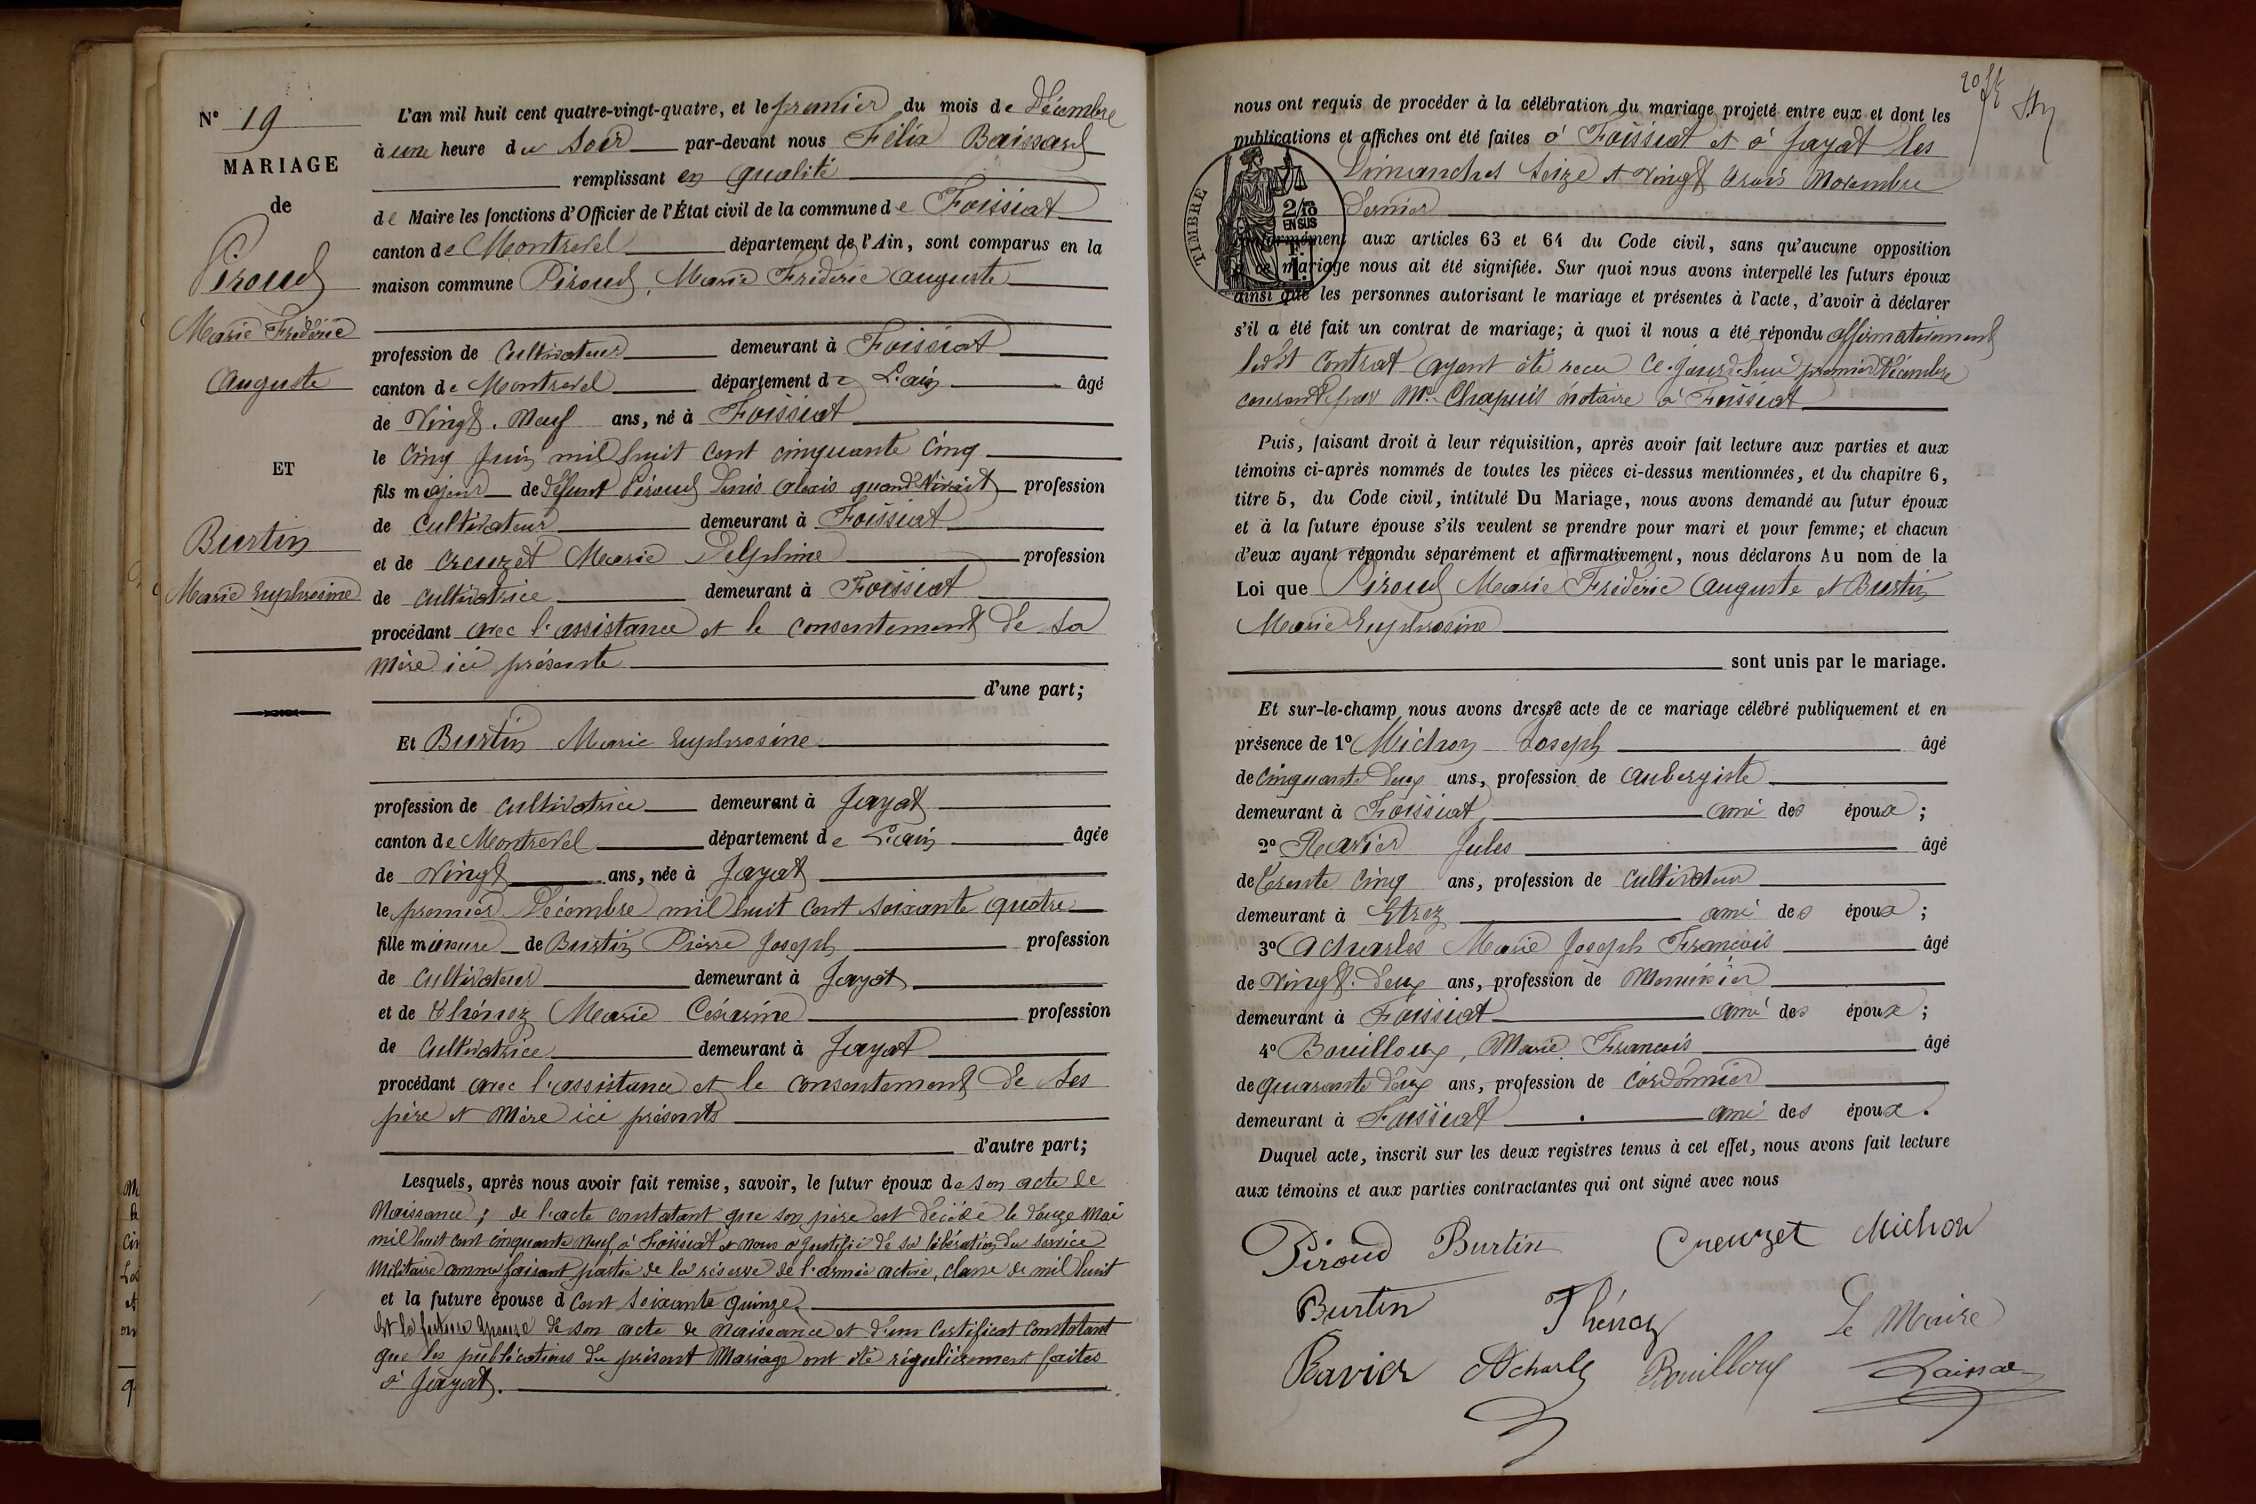 N° 19
MARIAGE
de
Piroud
Marie Fréderic
Auguste
ET
Burtin
Marie Euphrosine
L'an mil huit cent quatre-vingt-quatre, et le premier du mois de Décembre
à une heure du soir par-devant nous Félix
remplissant en qualité
de Maire les fonctions d'Officier de l'État civil de la commune de Foissiat
canton de Montrevel département de l'Ain, sont comparus en la
maison commune Piroud, Marie Fréderic Auguste
profession de Cultivateur demeurant à Foissiat
canton de Montrevel département de L'ain âgé
de Vingt-Neuf ans, né à Foissiat
le Cinq Juin mil huit cent cinquante Cinq
fils majeur de Défunt Piroud Denis Alexis quand vivait profession
de cultivateur demeurant à Foissiat
et de Creuzet Marie Delphine profession
de cultivatrice demeurant à Foissiat
procédant avec l'assistance et le consentement de sa
Mère ici présente
d'une part;
Et Burtin Marie Euphrosine
profession de cultivatrice demeurant à Jayat
canton de Montrevel département de L'ain âgée
de Vingt ans, née à Jayat
le premier Décembre mil huit cent soixante quatre
fille mineure de Burtin Pierre Joseph profession
de cultivateur demeurant à Jayat
et de Thénoz Marie Césarine profession
de Cultivatrice demeurant à Jayat
procédant avec l'assistance et le consentement de ses
père et Mère ici présents
d'autre part;
Lesquels, après nous avoir fait remise, savoir, le futur époux de son acte de
Naissance; de l'acte constatant que son père est décédé le douze Mai
mil huit cent cinquante neuf, à Foissiat et nous a justifié de sa libération du service
Militaire comme faisant partie de la réserve de l'armée active, classe de mil huit
et la future épouse d cent soixante quinze.
Et la future épouse de son acte de naissance et d'un Certificat Constatant
que les publications du présent Mariage ont été régulièrement faites
à Jayat.
nous ont requis de procéder à la célébration du mariage projeté entre eux et dont les
publications et affiches ont été faites à Foissiat et à Jayat les
Dimanches Seize et Vingt trois Novembre
Dernier
TIMBRE
2/10
EN SUS
conformément aux articles 63 et 64 du Code civil, sans qu'aucune opposition
à ce mariage nous ait été signifiée. Sur quoi nous avons interpellé les futurs époux
ainsi que les personnes autorisant le mariage et présentes à l'acte, d'avoir à déclarer
s'il a été fait un contrat de mariage; à quoi il nous a été répondu affirmativement
ledit Contrat ayant été recu Ce-jourd'hui premier Décembre
courant par Me. Chapuis notaire à Foissiat
Puis, faisant droit à leur réquisition, après avoir fait lecture aux parties et aux
témoins ci-après nommés de toutes les pièces ci-dessus mentionnées, et du chapitre 6,
titre 5, du Code civil, intitulé Du Mariage, nous avons demandé au futur époux
et à la future épouse s'ils veulent se prendre pour mari et pour femme; et chacun
d'eux ayant répondu séparément et affirmativement, nous déclarons Au nom de la
Loi que Piroud Marie Fréderic Auguste et Burtin
Marie Euphrosine
sont unis par le mariage.
Et sur-le-champ nous avons dressé acte de ce mariage célébré publiquement et en
présence de 1° Michon Joseph âgé
de Cinquante Deux ans, profession de Aubergiste
demeurant à Foissiat ami des époux;
2° Ravier Jules âgé
de trente Cinq ans, profession de cultivateur
demeurant à Etrez ami des époux;
3° Acharles Marie Joseph François âgé
de Vingt-Deux ans, profession de Menuisier
demeurant à Foissiat ami des époux;
4° Bouilloux, Marie François âgé
de quarante Deux ans, profession de Cordonnier
demeurant à Foissiat ami des époux.
Duquel acte, inscrit sur les deux registres tenus à cet effet, nous avons fait lecture
aux témoins et aux parties contractantes qui ont signé avec nous
Piroud Burtin Creuzet Michon
Burtin Thénoz Le Maire
Ravier Acharles Bouilloux